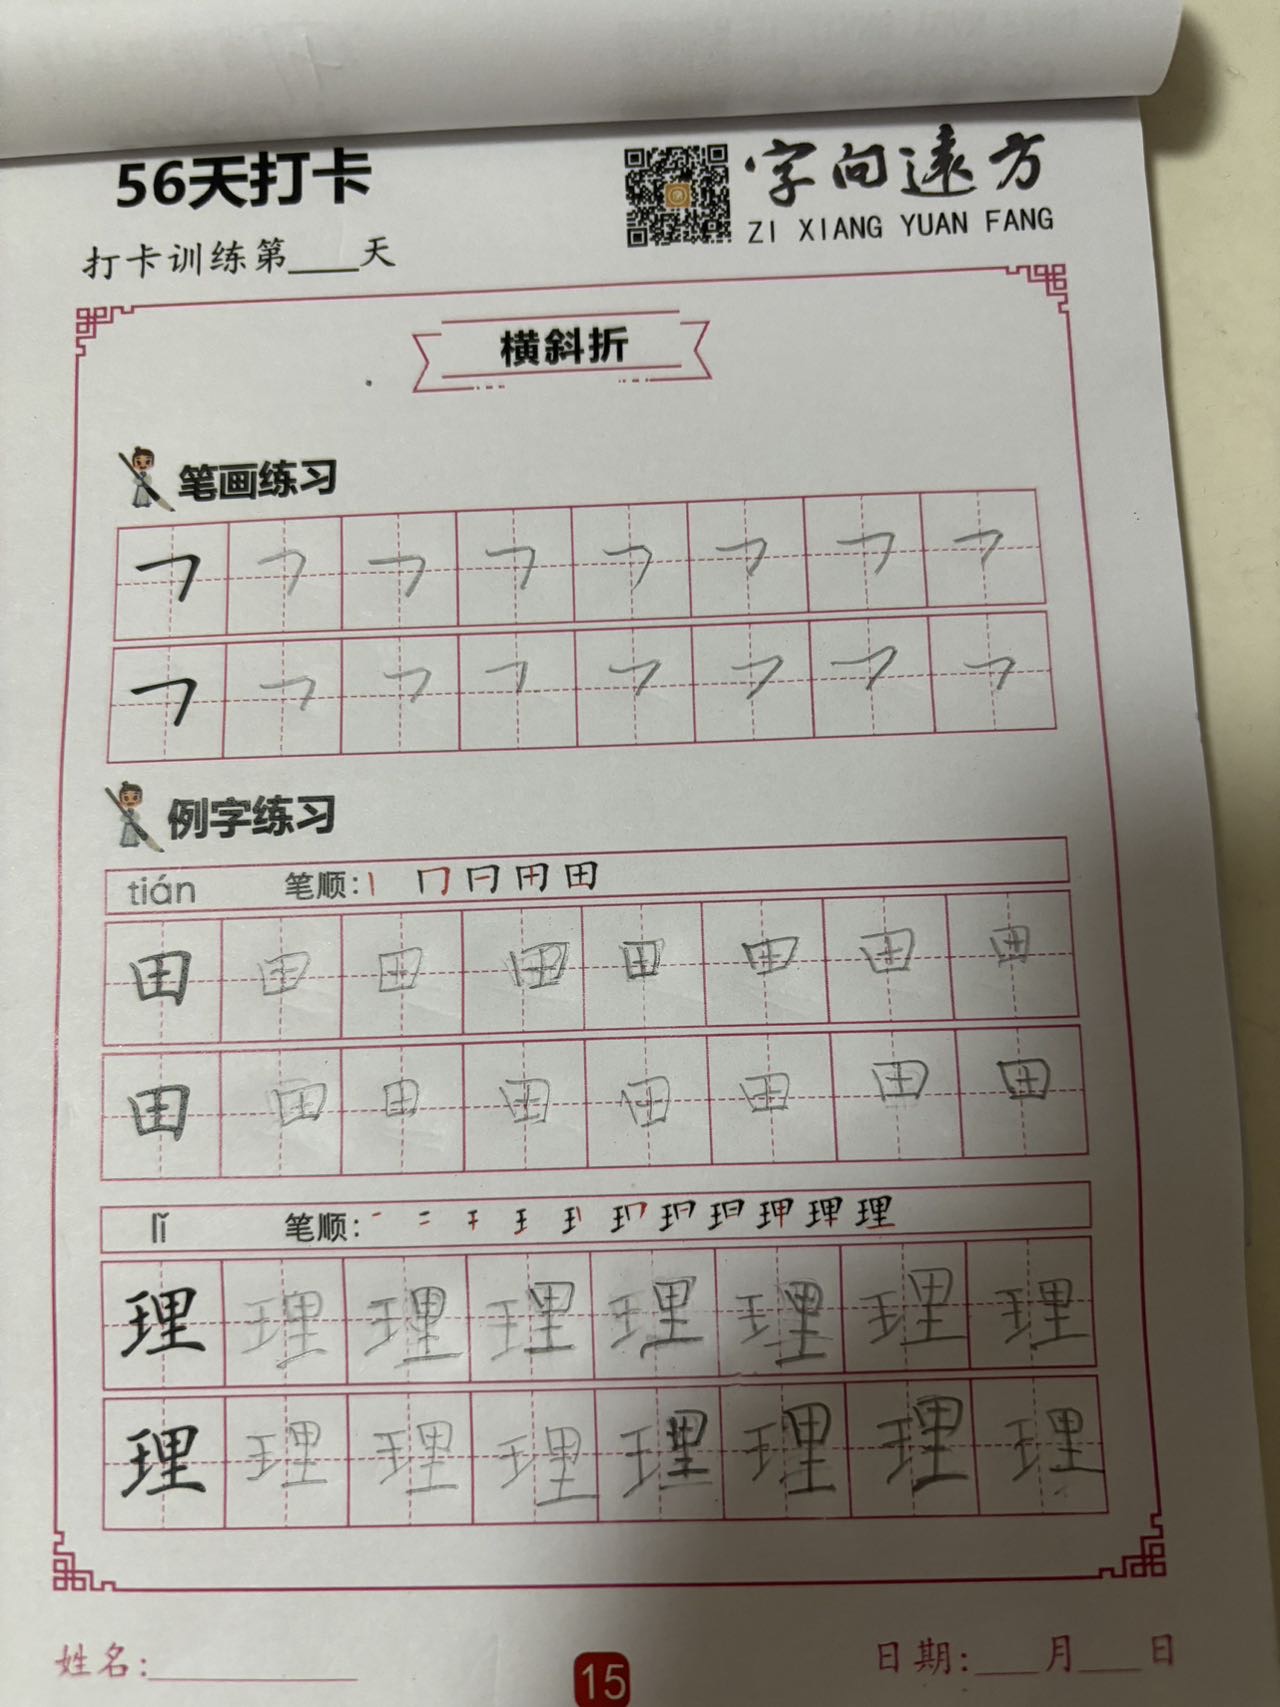 56天打卡
字向远方
ZI XIANG YUAN FANG
打卡训练第____天
横斜折
笔画练习
㇕ ㇕ ㇕ ㇕ ㇕ ㇕ ㇕ ㇕
㇕ ㇕ ㇕ ㇕ ㇕ ㇕ ㇕ ㇕
例字练习
tián 笔顺: 丨 冂 日 田 田
田 田 田 田 田 田 田 田
田 田 田 田 田 田 田 田
lǐ 笔顺:
理 理 理 理 理 理 理 理
理 理 理 理 理 理 理 理
姓名:____________
15
日期:____月____日